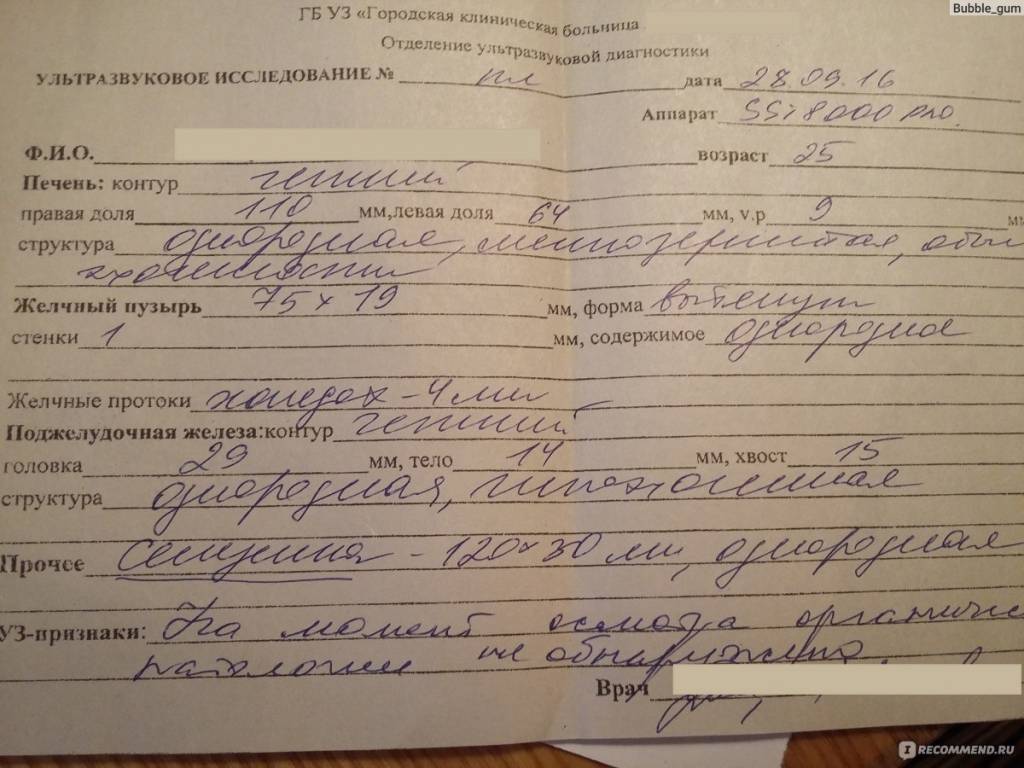 Bubble_gum
ГБ УЗ «Городская клиническая больница
Отделение ультразвуковой диагностики
УЛЬТРАЗВУКОВОЕ ИССЛЕДОВАНИЕ № пл дата 28.09.16
Аппарат SSi 8000 pro.
Ф.И.О. возраст 25
Печень: контур четкий
правая доля 110 мм,левая доля 64 мм, v.p 9 м
структура однородная, мелкозернистая, обыч
эхогенности
Желчный пузырь 75 х 19 мм, форма вытянут
стенки 1 мм, содержимое однородное
Желчные протоки холедох - 4 мм
Поджелудочная железа:контур четкий
головка 29 мм, тело 14 мм, хвост 15
структура однородная,
Прочее Селезенка - 120 х 30 мм, однородная
УЗ-признаки: На момент осмотра органичес
патологии не обнаружено.
Врач
IRECOMMEND.RU